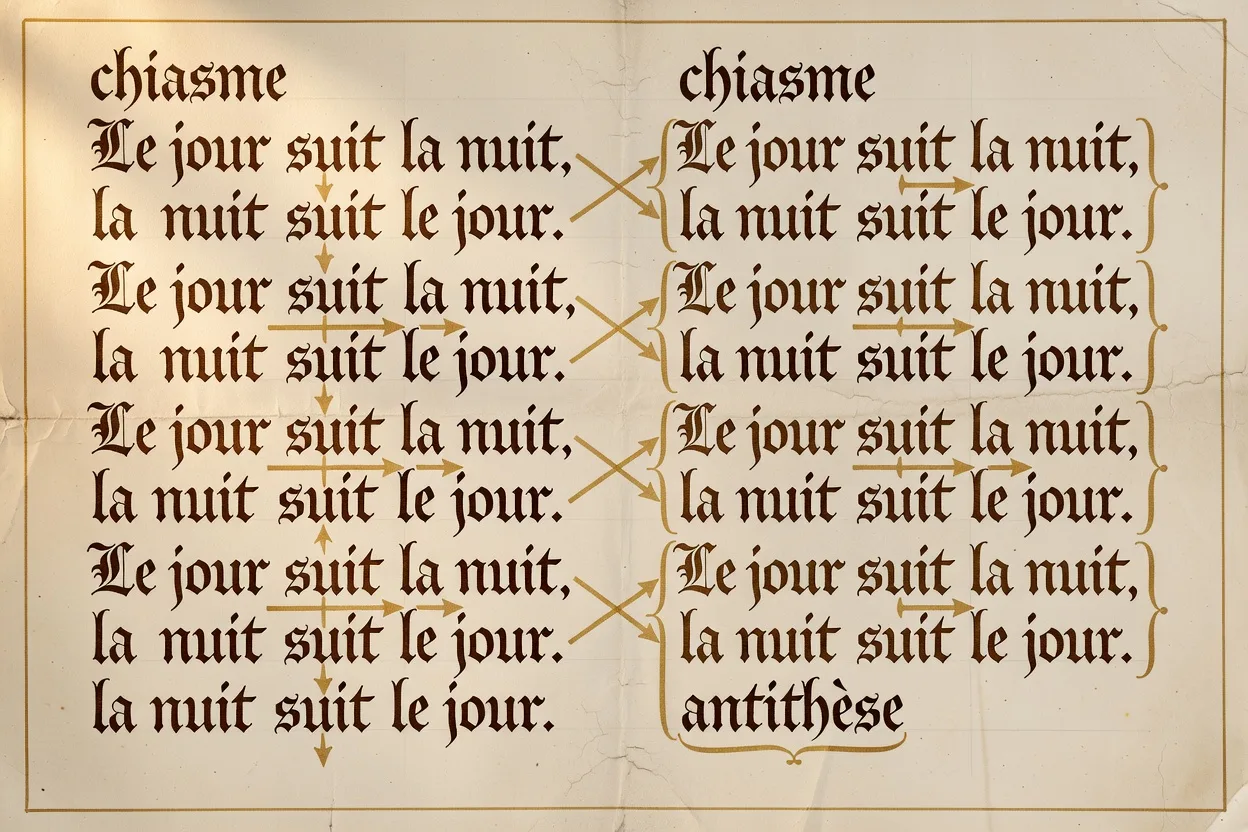 chiasme
Le jour suit la nuit,
la nuit suit le jour.
Le jour suit la nuit,
la nuit suit le jour.
Le jour suit la nuit,
la nuit suit le jour.
Le jour suit la nuit,
la nuit suit le jour.
la nuit suit le jour.
chiasme
Le jour suit la nuit,
la nuit suit le jour.
Le jour suit la nuit,
la nuit suit le jour.
Le jour suit la nuit,
la nuit suit le jour.
Le jour suit la nuit,
la nuit suit le jour.
antithèse